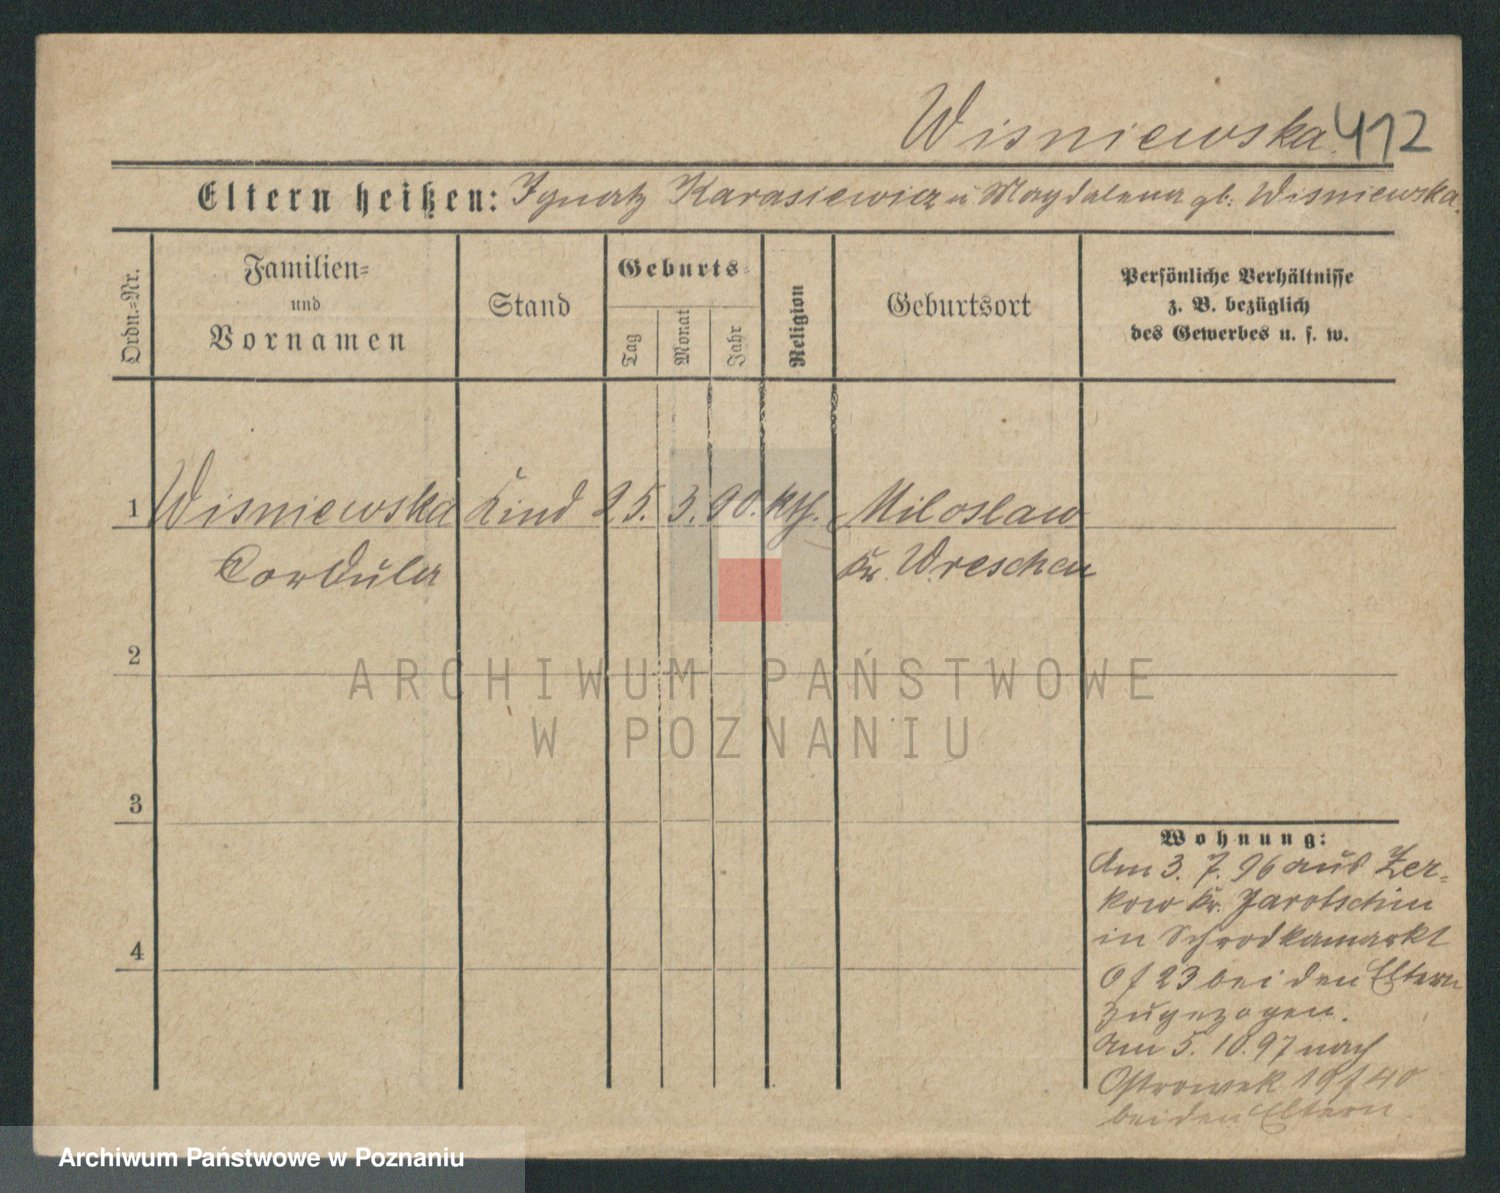 Wisniewska 412
Eltern heißen: Ignatz Karasiewicz u Magdalena gb: Wisniewska.
Ordn.=Nr.
Familien=
und
Vornamen
Stand
Geburts=
Tag
Monat
Jahr
Religion
Geburtsort
Persönliche Verhältnisse
z. B. bezüglich
des Gewerbes u. s. w.
1 Wisniewska Kind 25. 3. 90. kth. Miloslaw
Cordula Kr. Wreschen
2
ARCHIWUM PAŃSTWOWE
W POZNANIU
3
4
Wohnung:
Am 3. 7. 96 aus Zer=
kow Kr. Jarotschin
in Schrodkamarkt
23 bei den Eltern
zugezogen.
Am 5. 10. 97 nach
Ostrowek 40
bei den Eltern.
Archiwum Państwowe w Poznaniu